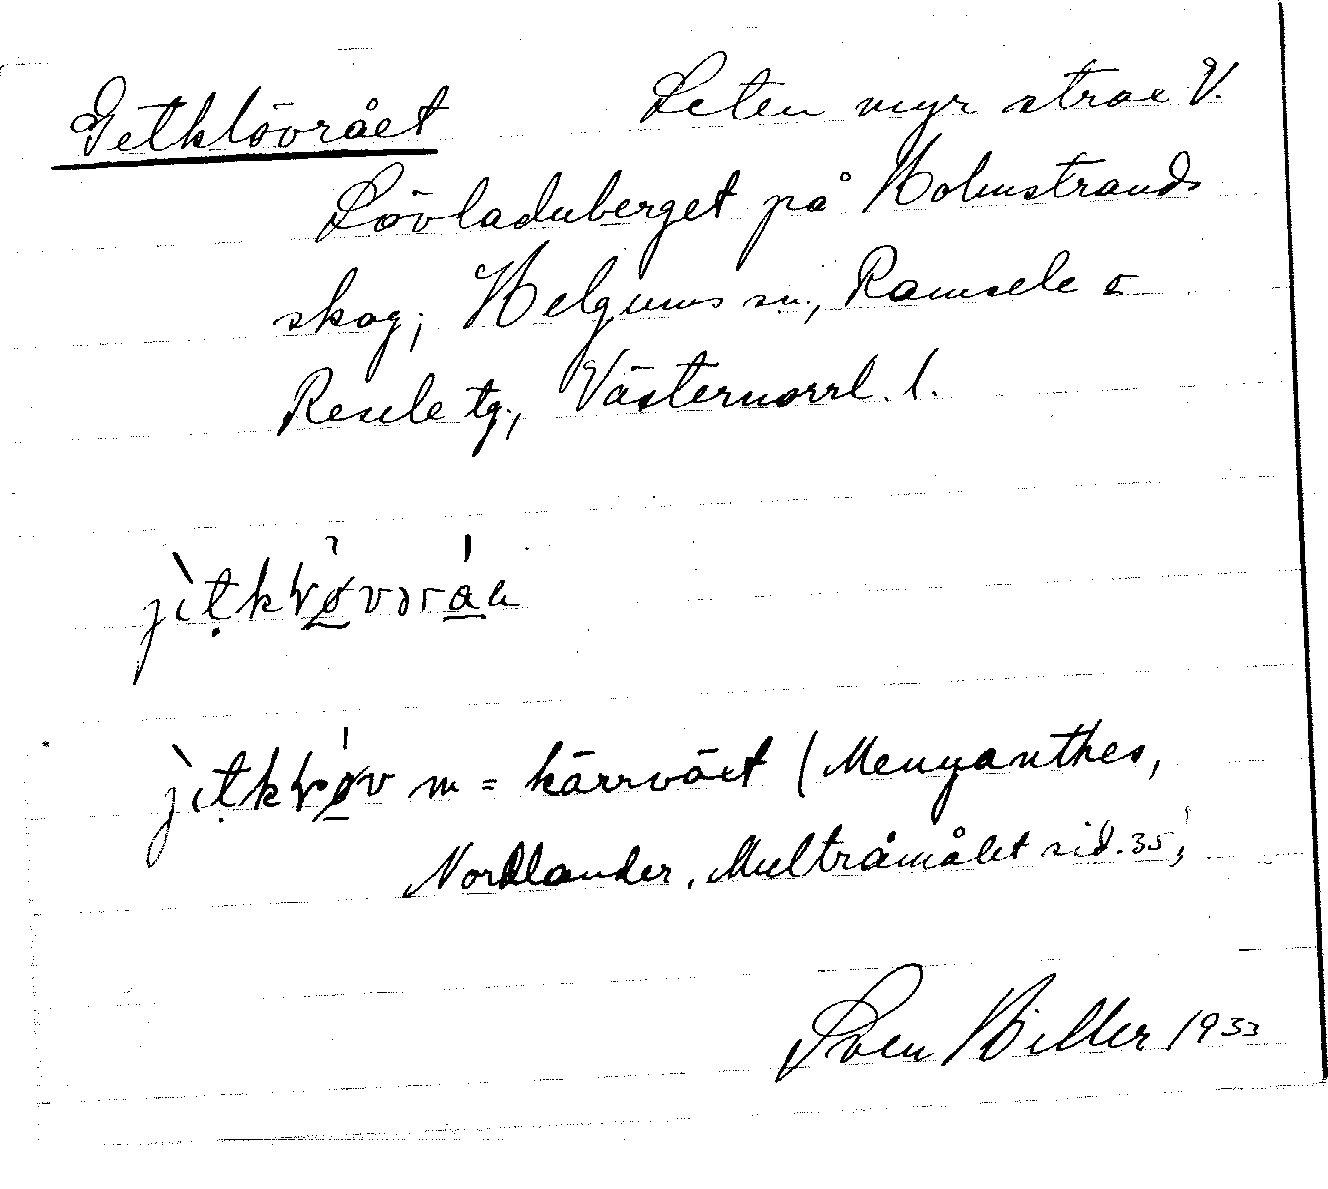 Getklövrået Liten myr strax V.
Lövladuberget på Holmstrands
skog; Helgums sn., Ramsele o
Resele tg., Västernorrl. l.
m = kärrväxt (Menyanthes,
Nordlander, Multråmålet sid. 35;
Sven Hiller 1933